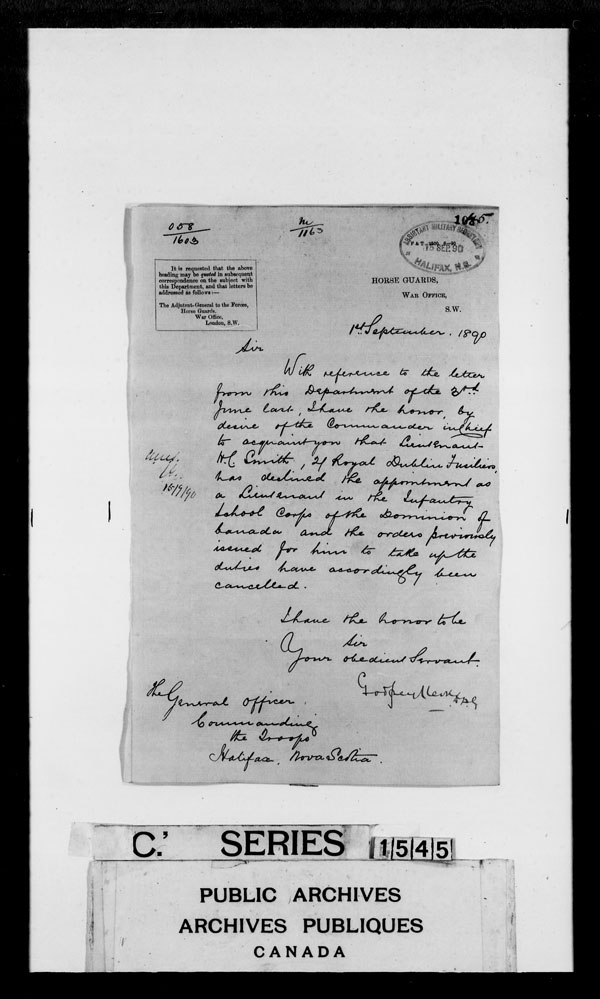 058
1603
m
1163
1085.
ASSISTANT MILITARY SECRETARY
15 SEP. 90
HALIFAX, N.S.
It is requested that the above
heading may be quoted in subsequent
correspondence on the subject with
this Department, and that letters be
addressed as follows:—
The Adjutant-General to the Forces,
Horse Guards,
War Office,
London, S.W.
HORSE GUARDS,
WAR OFFICE,
S.W.
1st September. 1890
Sir
With reference to the letter
from this Department of the 3rd
June last, I have the honor, by
desire of the Commander in Chief
to acquaint you that Lieutenant
H.C. Smith, 2/ Royal Dublin Fusiliers,
has declined the appointment as
a Lieutenant in the Infantry
School Corps of the Dominion of
Canada and the orders previously
issued for him to take up the
duties have accordingly been
cancelled.
15/9/90
I have the honor to be
Sir
Your obedient Servant.
Godfrey Clerk DAG
The General Officer
Commanding
the Troops
Halifax, Nova Scotia.
C.' SERIES 1545
PUBLIC ARCHIVES
ARCHIVES PUBLIQUES
CANADA